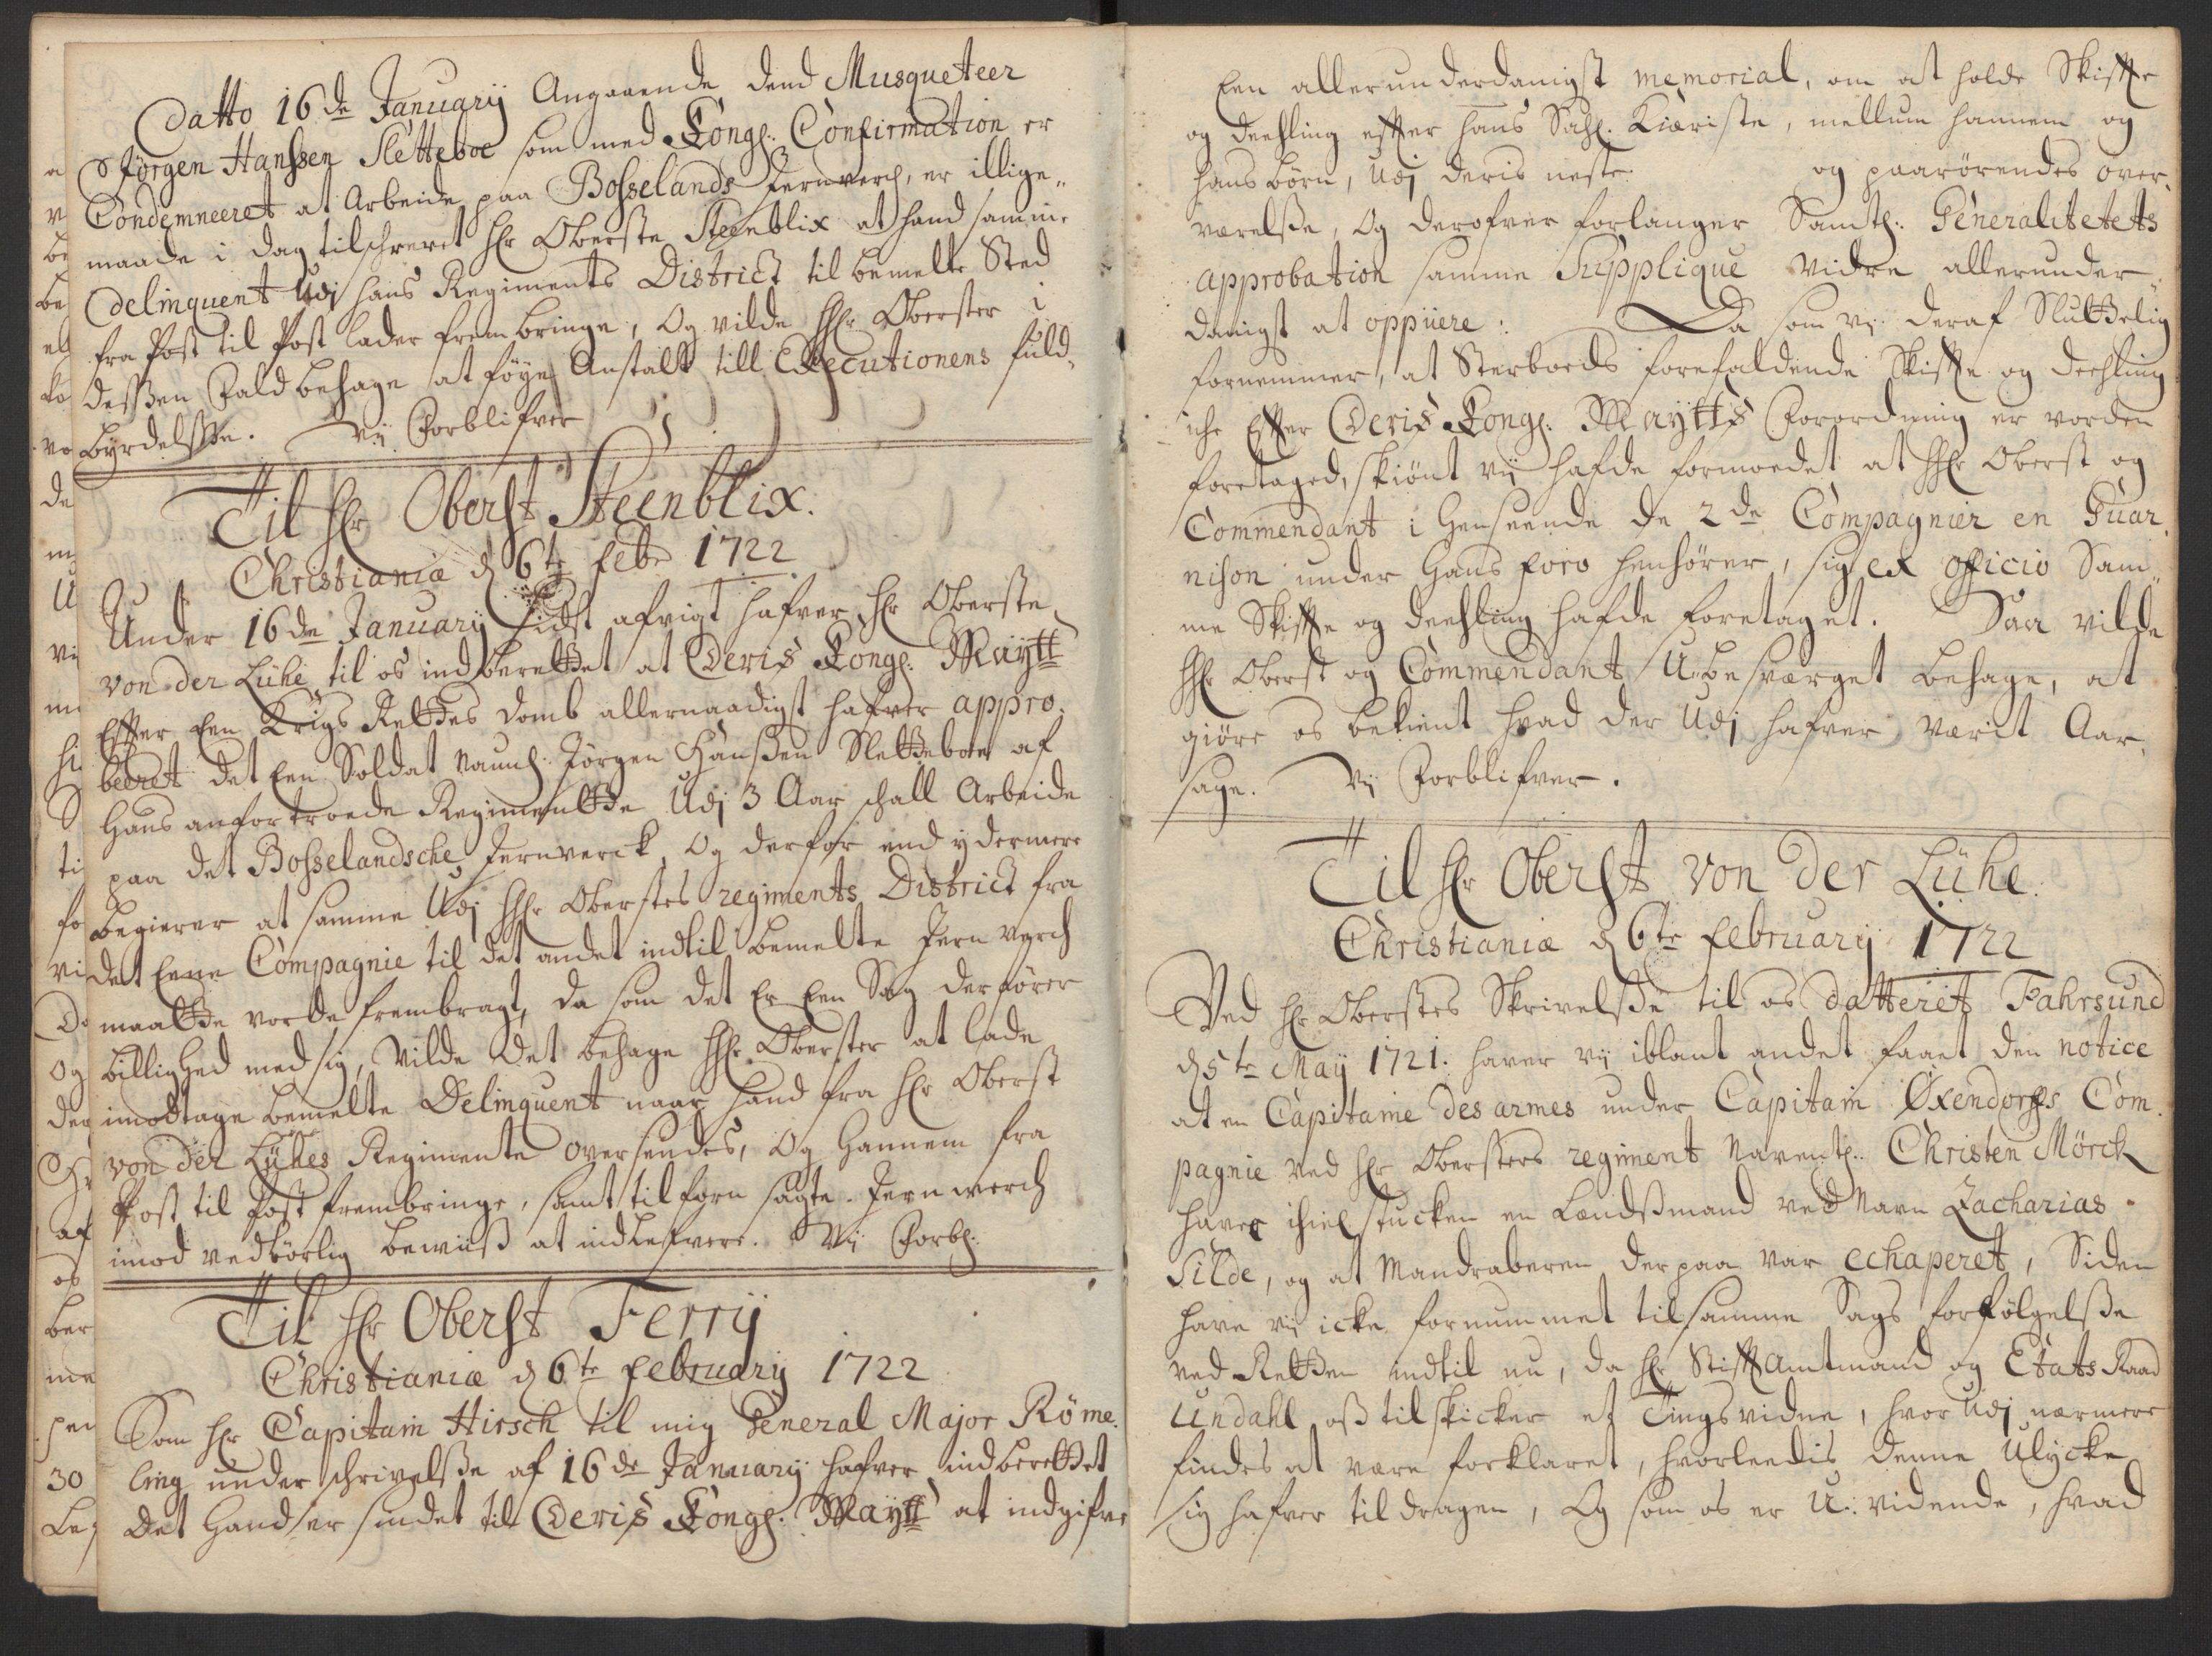 Datto 16de Januarij Angaaende dend Musqueteer
Jørgen Hanssen Sletteboe som med Kongl: Confirmation er
Condemneeret at Arbeide paa Bosselands Jernverch, er illige„
maade i dag tilschrevet Hr Oberste Steenblix at hand samme
delinquent Udj hans Regiments District til bemelte Sted
fra Post til Post lader frembringe, Og vilde Hhr Oberster i
dessen Fald behage at føye Anstalt till Executionens fuld„
byrdelsse. Vij Forblifver
Til Hr Oberst Steenblix.
Christiania d 6te Febr 1722
Under 16de Januarij sidst afvigt hafver Hr Oberste
von der Lühe til os indberettet at Deris Kongl: Maytt
Effter Een Krigs Rettes domb allernaadigst hafver appro„
beeret det Een Soldat naunl: Jørgen Hanssen Sletteboe af
Hans anfortroede Regimentte Udj 3 Aar schall Arbeide
paa det Bosselandsche Jernverck, Og derfor end ydermere
begierer at samme Udj Hhr Oberstes regiments District fra
det Eene Compagnie til det andet indtil bemelte Jernverch
maatte vorde frembragt, da som det Er Een Sag der fører
billighed med sig, Vilde det behage Hhr Oberster at lade
imodtage bemelte Delinquent naar hand fra Hr Oberst
von der Lühes Regimente oversendes, Og Hannem fra
Post til Post frembringe, samt til forn sagte Jernwerch
imod vedbørlig bewiiss at indlefvere. Vij Forbl:
Til Hr Oberst Ferrij
Christiania d 6te februarij 1722
Som Hr Capitain Hirsch til mig General Major Röme„
ling under schrivelsse af 16de Januarij hafver indberettet
Det Hand er sindet til Deris Kongl: Maytt at indgifve
Een allerunderdanigst memorial, om at holde Skiffte
og deehling effter hans Sahl. Kiæriste, mellum hannem og
hans børn, Udj deris neste og paarørendes over„
værelsse, Og derofver forlanger Samtl: Generalitetets
approbation samme Supplique vidre allerunder„
danigst at oppüere: Da som vij deraf Sluttelig
fornemmer, at Sterboeds forefaldende Skiffte og deehling
iche Effter Deris Kongl: Maytts Forordning er vorden
foretaged, skiønt vij hafde formoedet at Hhr Oberst og
Commendant i Henseende de 2de Compagnier en Guar„
nison under Hans foro henhører, sig ex officio Sam„
me Skiffte og deehling hafde foretaget. Saa vilde
Hhr Oberst og Commendant Ubesværget behage, at
giøre os bekient hvad der Udj hafver værit Aar„
sage. Vij Forblifver.
Til Hr Oberst von der Lühe.
Christiania d 6te februarij 1722
Ved Hr Oberstes Skrivelsse til os datteret Fahrsund
d 5te Maij 1721. haver vij iblant andet faaet den notice
at en Capitaine des armes under Capitain Øxendorffs Com„
pagnie ved Hr Obersters regiment Naventl: Christen Mörck
haver ihielstucken en Landssmand ved Navn Zacharias
Silde, og at Mandraberen derpaa var echaperet, Siden
have vij icke fornummet til samme Sags forfølgelsse
ved Retten indtil nu, da Hr Stifftamtmand og Etats Raad
Undahl oss tilskicker et Tingsvidne, hvor Udj nærmere
findes at være forklaret, hvorleedis denne Ulycke
sig hafver tildragen, Og som os er U:vidende, hvad